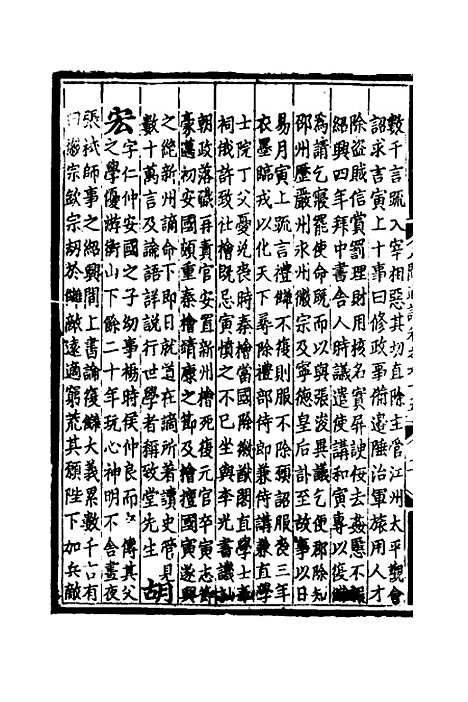 數千言疏入宰相惡其切直除主管江州太平觀會
詔求言寅上十事曰修政事備邊陲治軍旅用人才
除盜賊信賞罰理財用核名實屏諛佞去姦慝不報
紹興四年拜中書舍人時議遣使講和寅專以復讎
為請乞寢罷使命既而以與張浚異議乞便郡除知
邵州歷嚴州永州徽宗及寧德皇后訃至故事以日
易月寅上疏言禮讎不復則服不除願詔服喪三年
衣墨臨戎以化天下尋除禮部侍郎兼侍講兼直學
士院丁父憂免喪時秦檜當國除徽猷閣直學士奉
祠俄許致仕檜既忌寅憤之不已坐與李光書譏訕
朝政落職再責官安置新州檜死復元官卒寅志節
豪邁初安國頗重秦檜靖康之節及檜擅國寅遂與
之絕新州謫命下即日就道在謫所著讀史管見
數十萬言及論語詳說行世學者稱致堂先生 胡
宏字仁仲安國之子幼事楊時侯仲良而 傳其父
之學優游衡山下餘二十年玩心神明不舍晝夜
張栻師事之紹興間上書論復讎大義累數千言有
曰徽宗欽宗劫於讎敵遠適窮荒其願陛下加兵敵